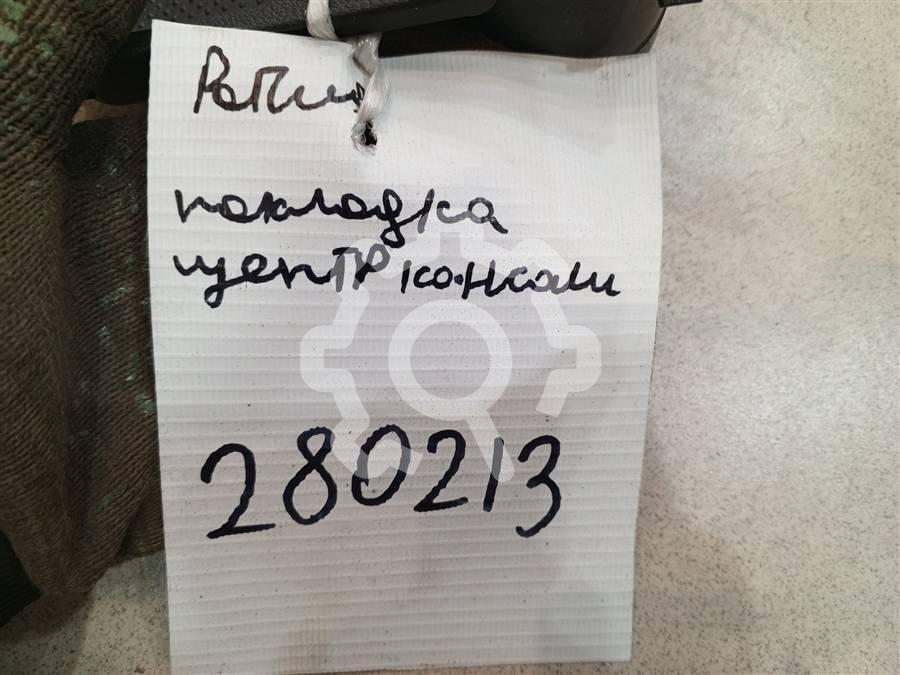 накладка
центр консоли
280213